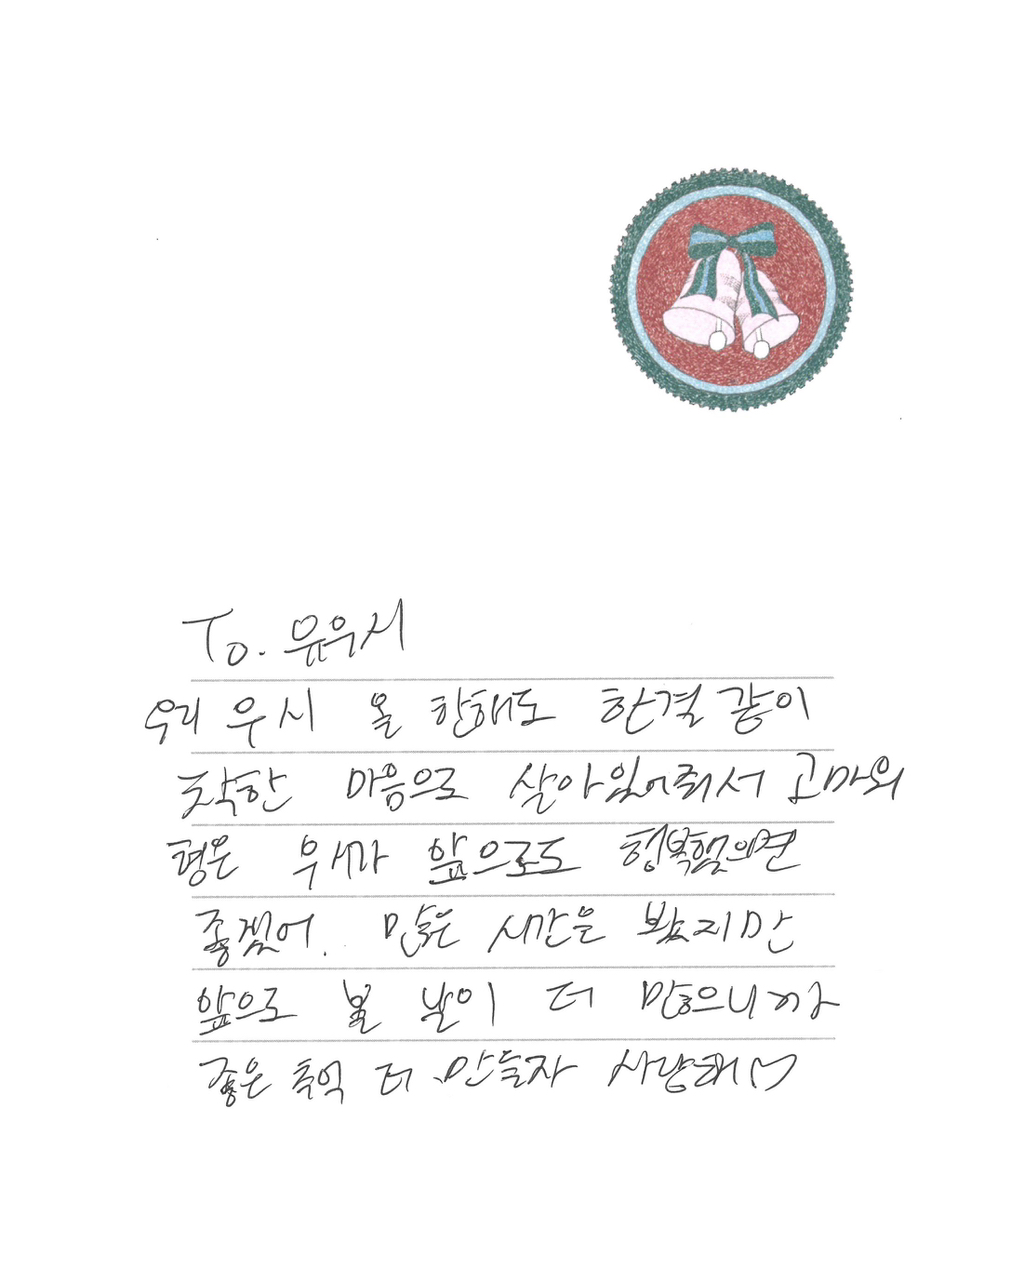 To. 유우시
우리 우시 올 한해도 한결 같이
착한 마음으로 살아있어줘서 고마워
형은 우시가 앞으로도 행복했으면
좋겠어. 많은 시간을 봤지만
앞으로 볼 날이 더 많으니까
좋은 추억 더 만들자 사랑해